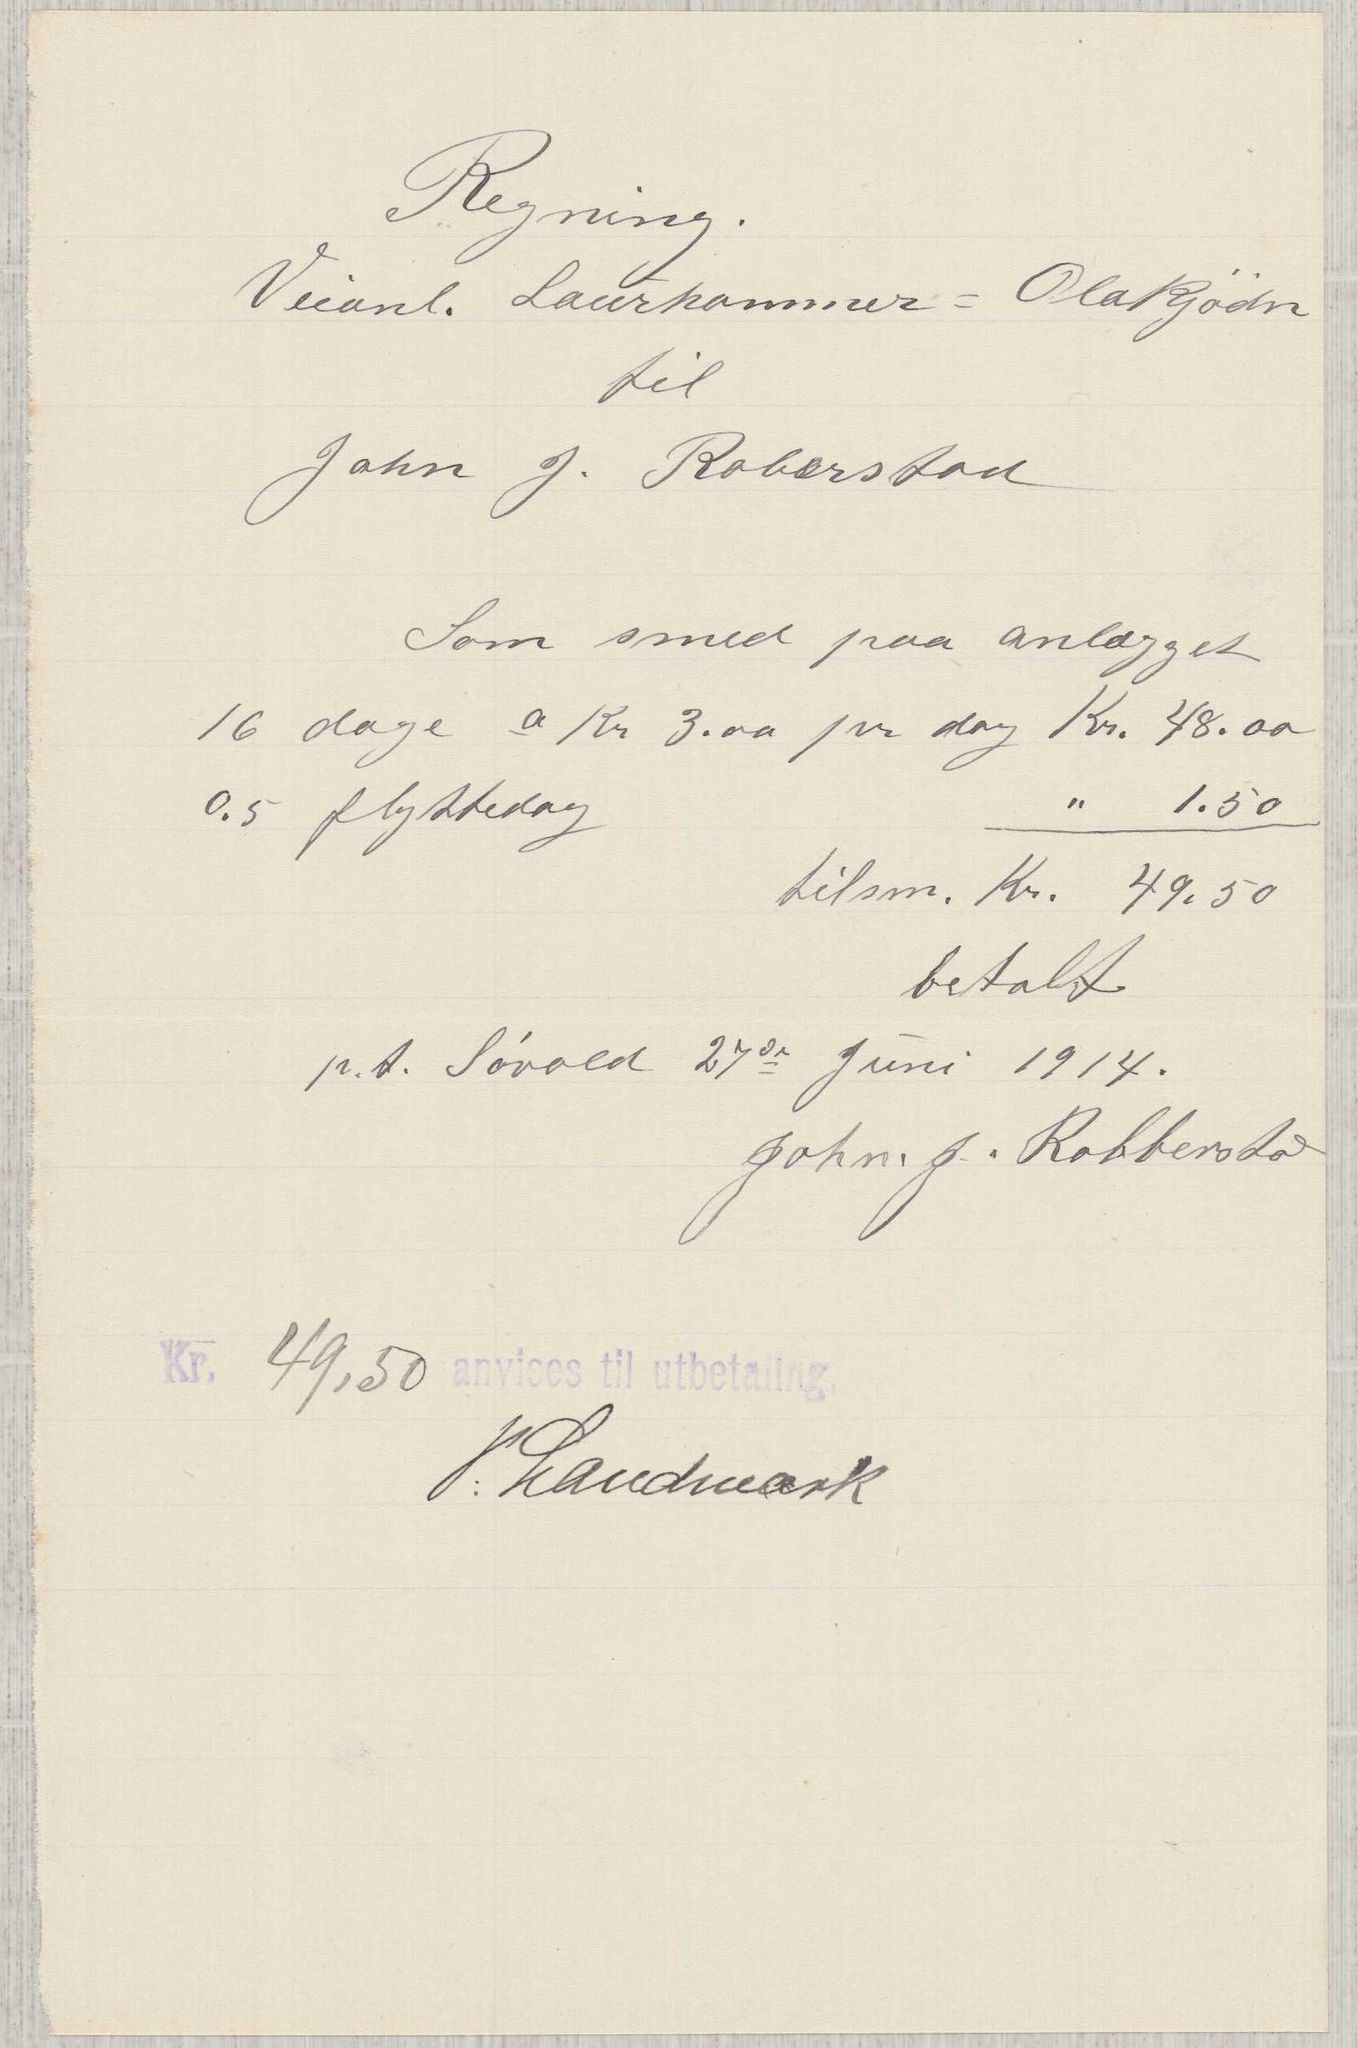 Regning.
Veianl. Laurhammer = Olakjödn
til
John J. Roberstad
Som smed paa anlægget
16 dage a Kr 3.00 pr dag Kr. 48.00
0.5 flyttedag " 1.50
tilsm. Kr. 49.50
betalt
p.t. Sövold 27de Juni 1914.
John. J. Robberstad
Kr. 49,50 anvises til utbetaling.
P. Landmark